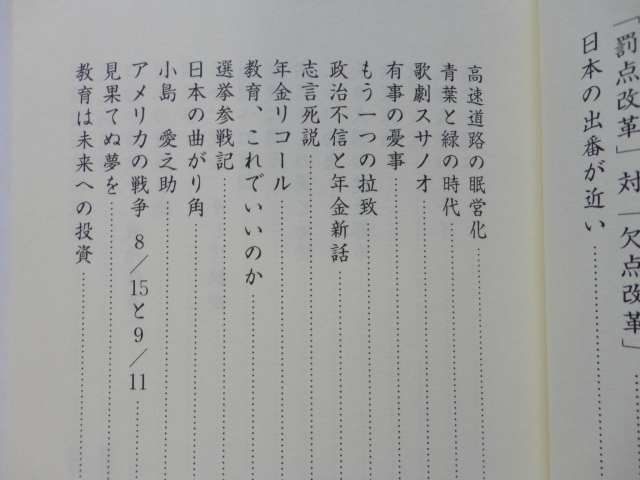 「罰点改革」対「欠点改革」
日本の出番が近い
高速道路の眠営化
青葉と緑の時代
歌劇スサノオ
有事の憂事
もう一つの拉致
政治不信と年金新話
志言死説
年金リコール
教育、これでいいのか
選挙参戦記
日本の曲がり角
小島 愛之助
アメリカの戦争 8/15と9/11
見果てぬ夢を
教育は未来への投資